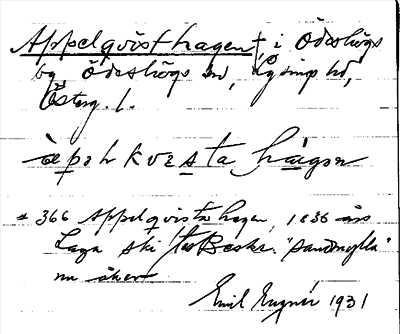 Appelqvisthagen†, i Ödeshögs
by, Ödeshögs sn, Lysings hd,
Österg. l.
hagen
* 366 Appelqvista hagen, 1836 års
Laga ski. Beskr. "Sandmylla"
nu åker
Emil Engnér 1931